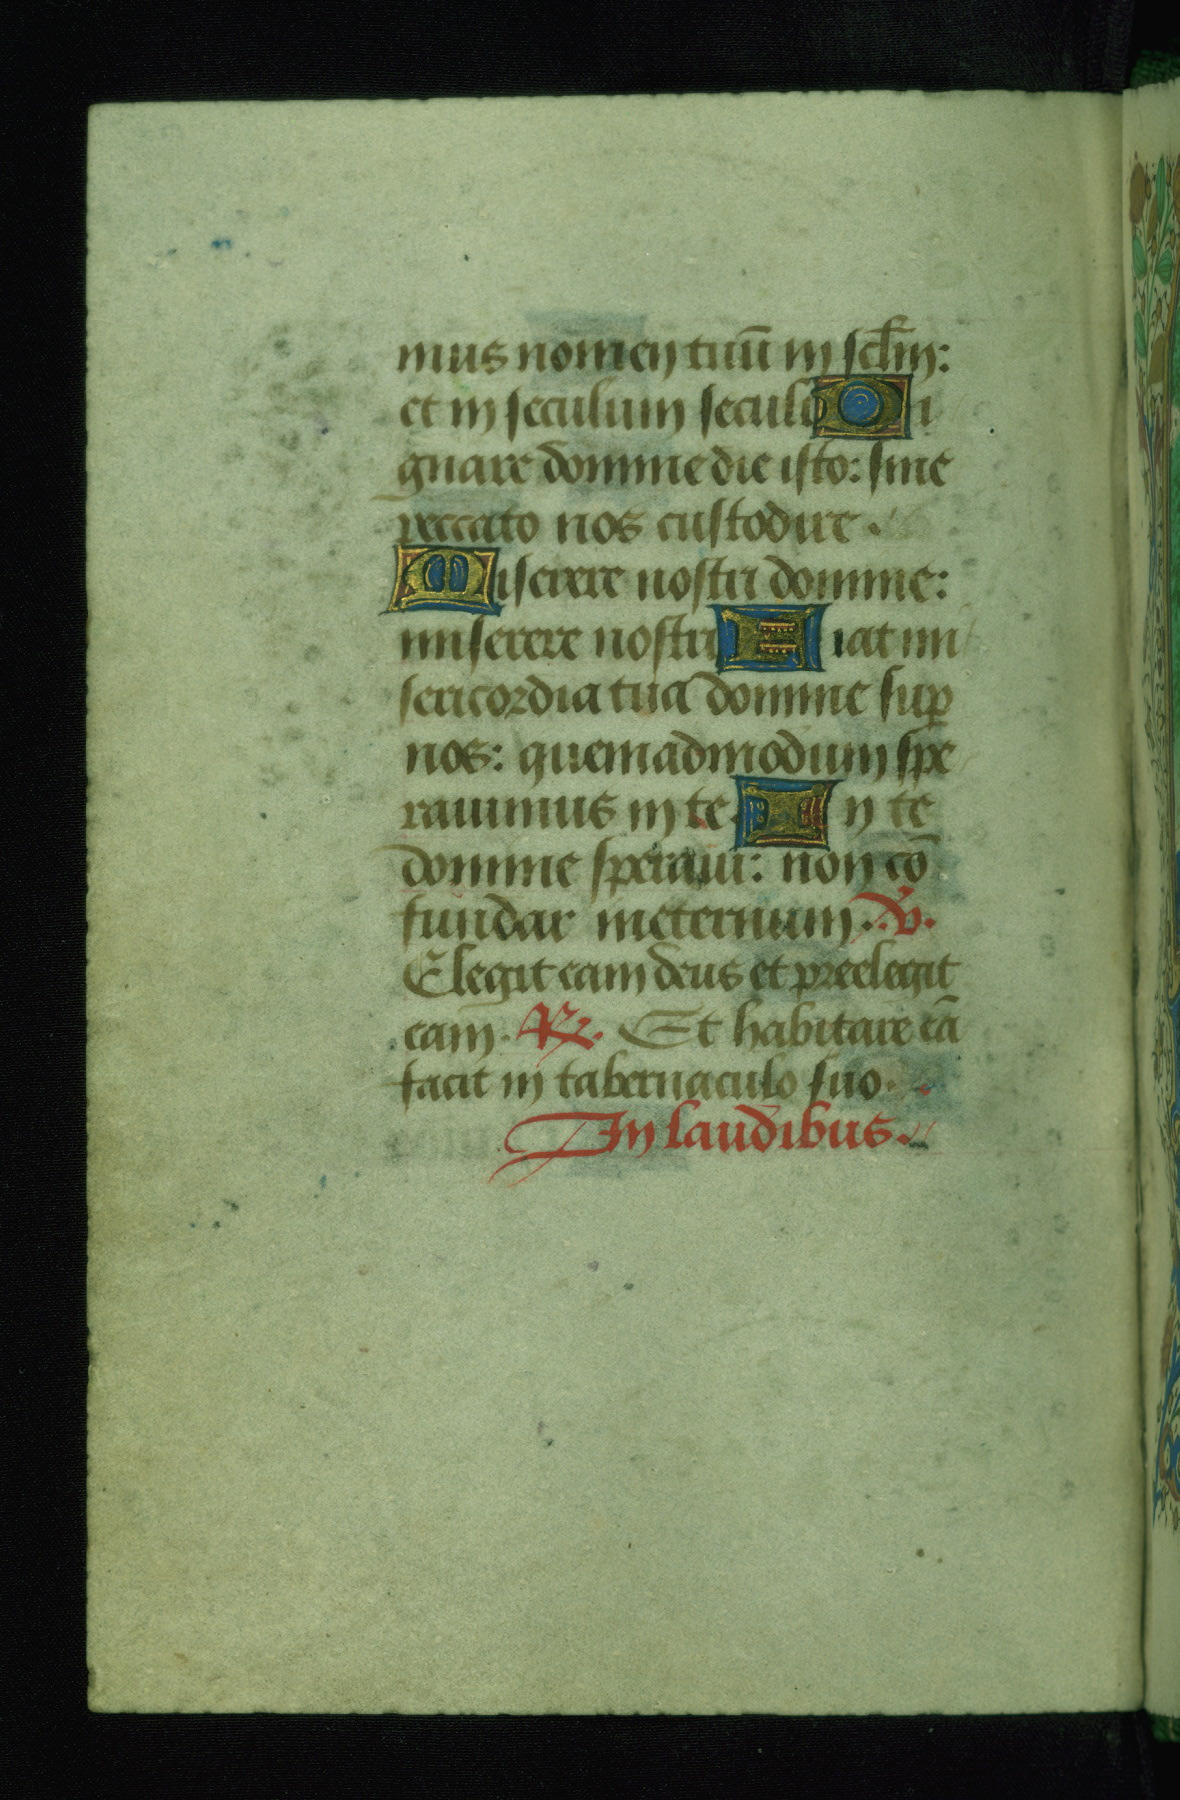 mus nomen tuū in sclm̄:
et in seculum seculi Di
gnare domine die isto: sine
peccato nos custodire.
Miserere nostri domine:
miserere nostri Fiat mi
sericordia tua domine sup̄
nos: quemadmodum spe
rauimus in te. In te
domine speraui: non cō
fundar ineternum. V̄.
Elegit eam deus et preelegit
eam. R̄. Et habitare eā
facit in tabernaculo suo.
In laudibus.